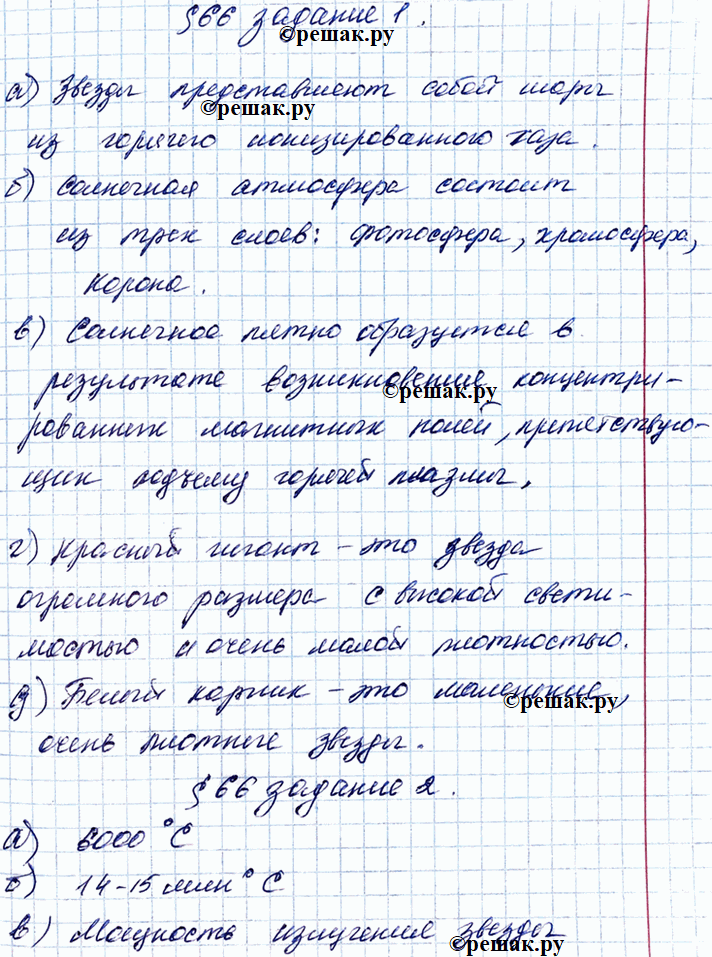 §66 задание 1.
©решак.ру
а) Звезды представляют собой шары
©решак.ру
из горячего ионизированного газа.
б) Солнечная атмосфера состоит
из трех слоев: фотосфера, хромосфера,
корона.
в) Солнечное пятно образуется в
результате возникновения концентри-
©решак.ру
рованных магнитных полей, препятствую-
щих подъему горячей плазмы.
г) Красный гигант – это звезда
огромного размера с высокой свети-
мостью и очень малой плотностью.
д) Белый карлик – это маленькие,
©решак.ру
очень плотные звезды.
§66 задание 2.
а) 6000 °С
б) 14-15 млн °С
в) Мощность излучения звезды
©решак.ру